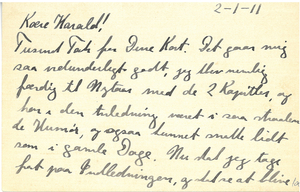 2-1-11
Kære Harald!
Tusind Tak for Dine Kort. Det gaar mig
saa vidunderligt godt, jeg blev nemlig
færdig til Nytaar med de 2 Kapitler, og
har i den Anledning været i saa straalen
de Humør, og ogsaa kunnet lidt
som i gamle Dage. Nu skal jeg tage
fat paa Indledningen, og det re at blive